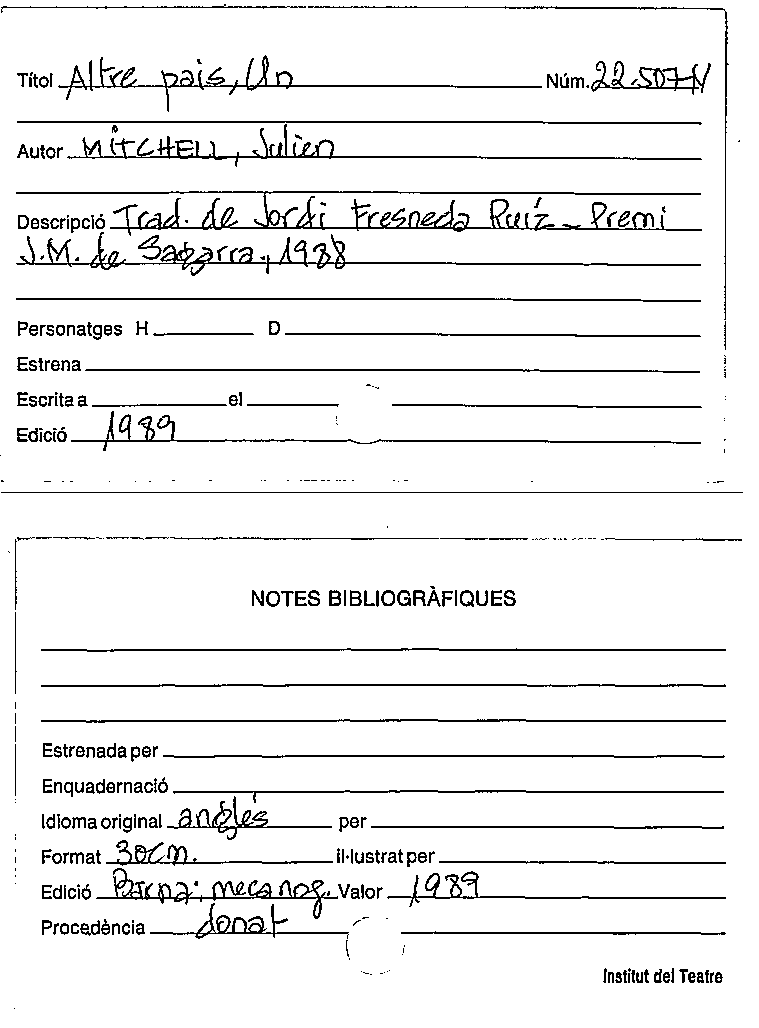 Títol Altre pais, Un Núm. 22.507-N
Autor MITCHELL, Julien
Descripció Trad. de Jordi Fresneda Ruíz - Premi
J.M. de Sagarra, 1988
Personatges H D
Estrena
Escrita a el
Edició 1989
NOTES BIBLIOGRÀFIQUES
Estrenada per
Enquadernació
Idioma original anglès per
Format 30cm. il·lustrat per
Edició Barna: mecanog. Valor 1989
Procedència donat
Institut del Teatre